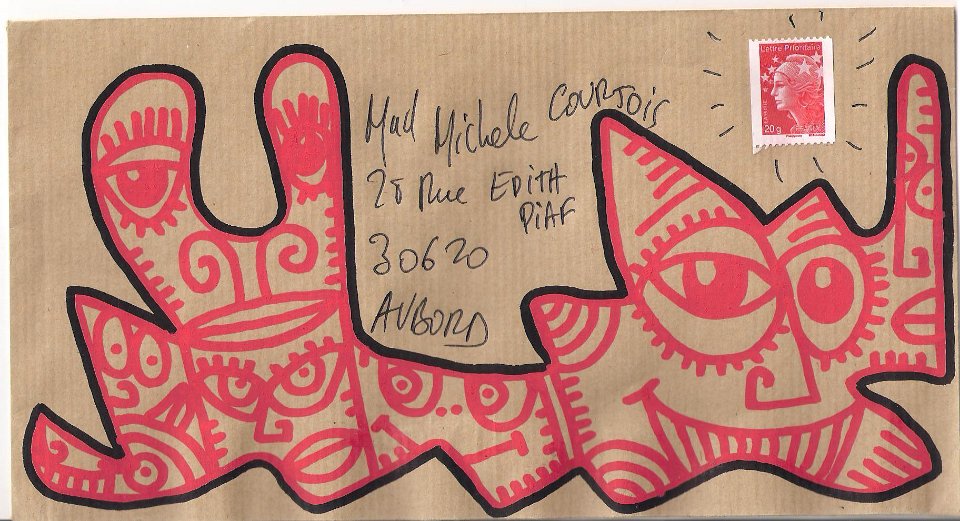 Lettre Prioritaire
20g
Mad Michele COURJOIS
28 Rue EDITH
PIAF
30620
AUBORD